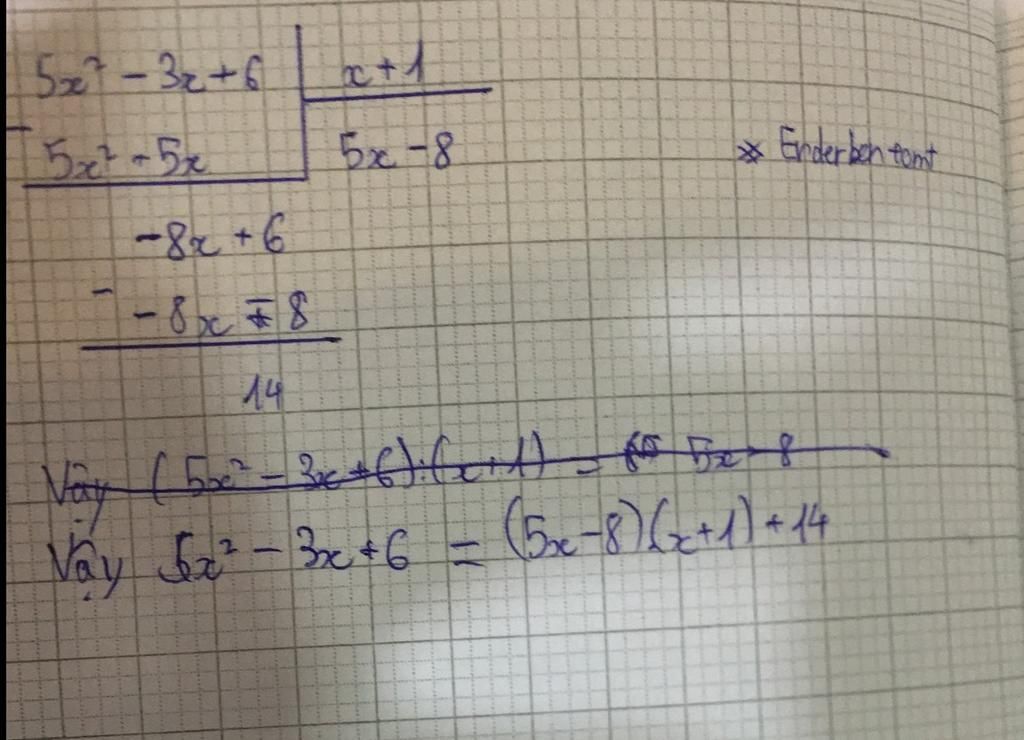 5x² - 3x + 6 | x + 1
- 5x² + 5x | 5x - 8
* Enderbentomt
-8x + 6
- -8x - 8
14
Vậy (5x² - 3x + 6) : (x + 1) = 5x - 8
Vậy 5x² - 3x + 6 = (5x - 8)(x + 1) + 14